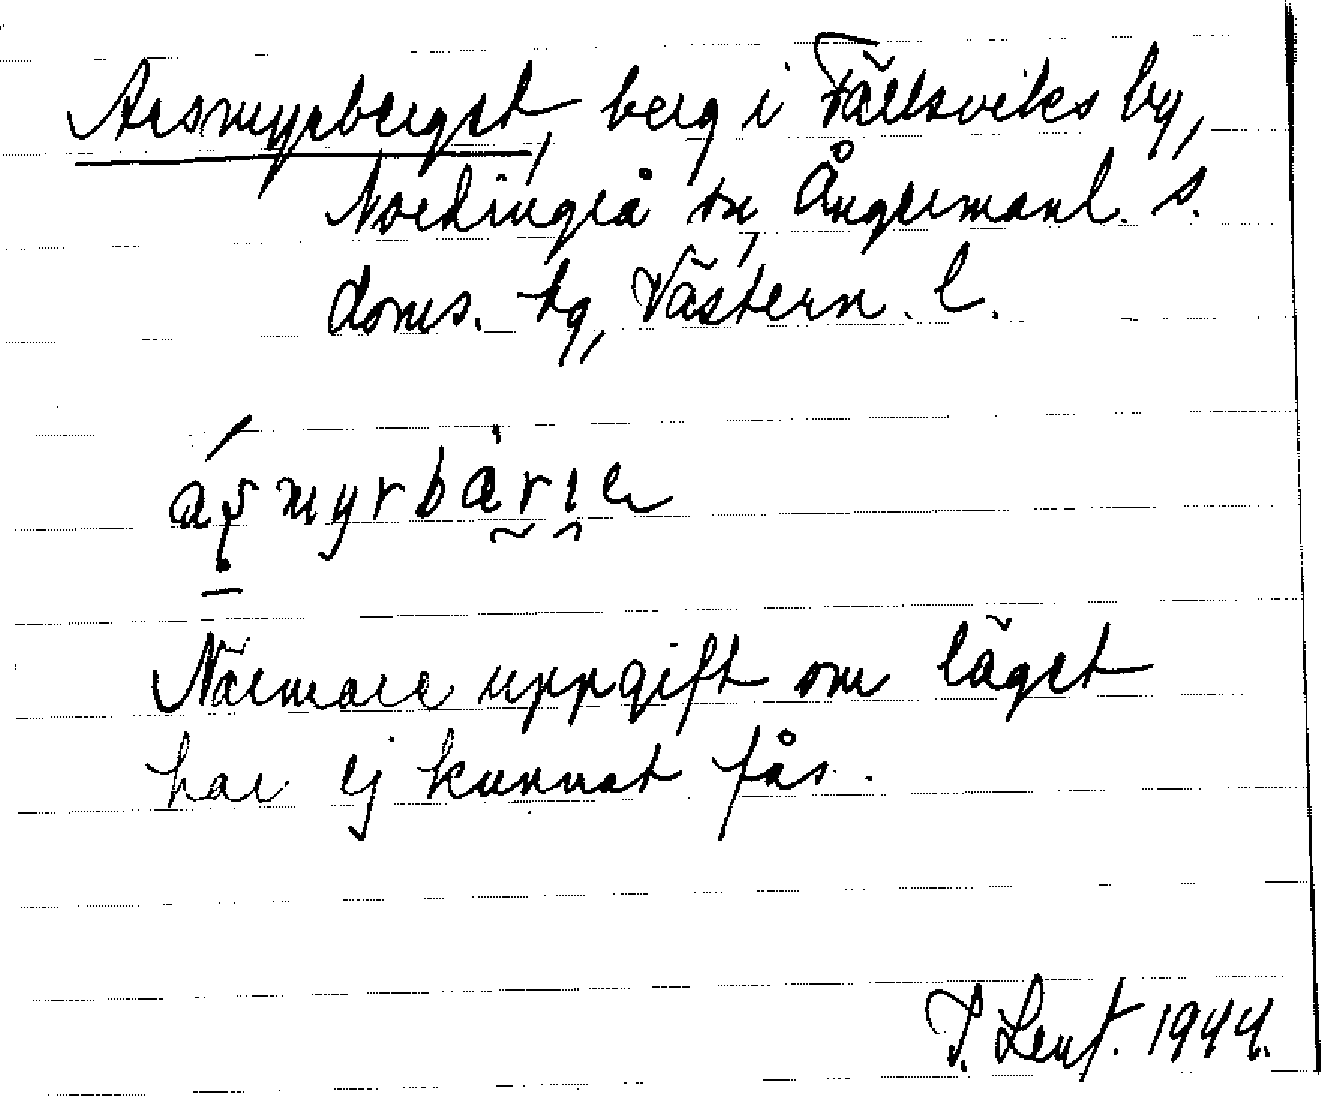 Arsmyrberget, berg i Fällsviks by,
Nordingrå sn, Ångermanl. s.
doms. tg, Västern. l.
ásmyrbàrıe
Närmare uppgift om läget
har ej kunnat fås.
1944.